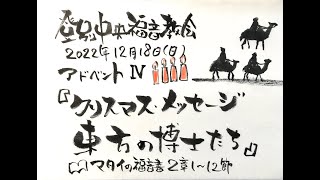 登別中央福音教会
2022年12月18日(日)
アドベントⅣ
『クリスマス・メッセージ
東方の博士たち』
マタイの福音書2章1〜12節